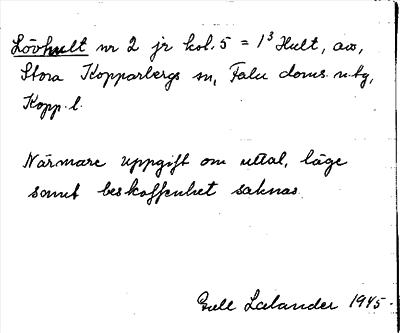 Lövhult nr 2 jr kol. 5 = 1³ Hult, avs,
Stora Kopparbergs sn, Falu doms. n. tg,
Kopp. l.
Närmare uppgift om uttal, läge
samt beskaffenhet saknas.
Gull Lælander 1945.